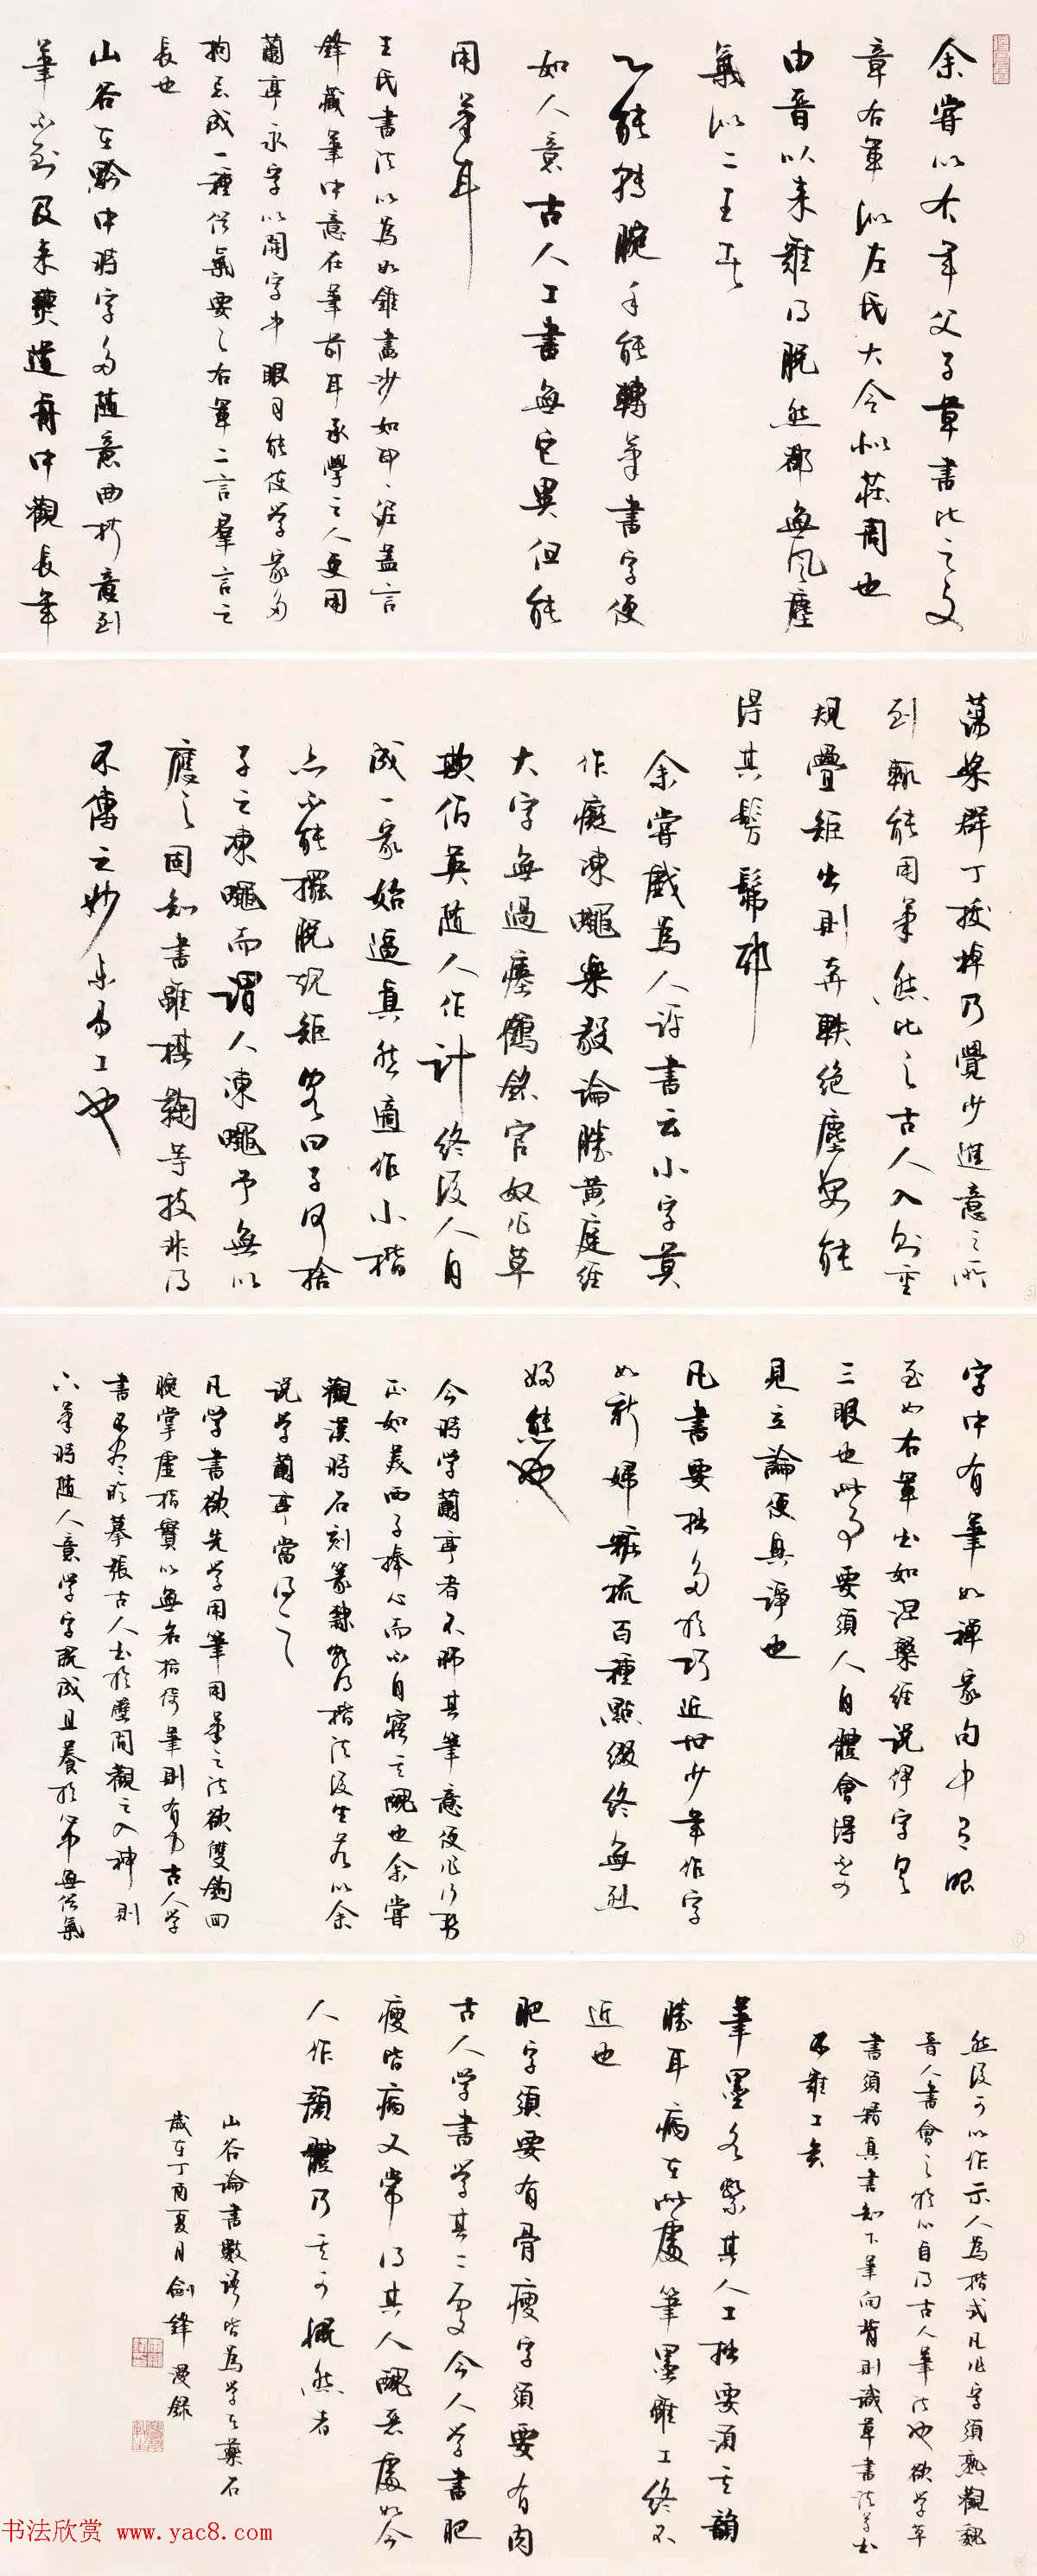 余嘗以右軍父子草書比之文
章右軍似左氏大令似莊周也
由晉以來難得脫然都無風塵
氣似二王者
心能轉腕手能轉筆書字便
如人意古人工書無它異但能
用筆耳
王氏書法以為如錐畫沙如印印泥蓋言
鋒藏筆中意在筆前耳承學之人更用
蘭亭永字以開字中眼目能使學家多
拘忌成一種俗氣要之右軍二言群言之
長也
山谷在黔中時字多隨意曲折意到
筆不到及來僰道舟中觀長年
蕩槳群丁撥棹乃覺少進意之所
到輒能用筆然比之古人入則重
規疊矩出則奔軼絕塵安能
得其髣髴耶
余嘗戲為人評書云小字莫
作癡凍蠅樂毅論勝黃庭經
大字無過瘞鶴銘官奴作草
欺伯英隨人作計終後人自
成一家始逼真然適作小楷
亦不能擺脫規矩客曰子何捨
子之凍蠅而謂人凍蠅予無以
應之固知書雖棋鞠等技非得
不傳之妙未易工也
字中有筆如禪家句中有眼
至如右軍書如涅槃經說伊字具
三眼也此事要須人自體會得不可
見立論便興諍也
凡書要拙多於巧近世少年作字
如新婦粧梳百種點綴終無烈
婦態也
今時學蘭亭者不師其筆意便作行勢
正如美西子捧心而不自寤其醜也余嘗
觀漢時石刻篆隸頗得楷法後生若以余
說學蘭亭當得之
凡學書欲先學用筆用筆之法欲雙鉤回
腕掌虛指實以無名指倚筆則有力古人學
書不盡臨摹張古人書於壁間觀之入神則
下筆時隨人意學字既成且養於心中無俗氣
然後可以作示人為楷式凡作字須熟觀魏
晉人書會之於心自得古人筆法也欲學草
書須精真書知下筆向背則識草書法草書
不難工矣
筆墨各繫其人工拙要須其韻
勝耳病在此處筆墨雖工終不
近也
肥字須要有骨瘦字須要有肉
古人學書學其二處今人學書肥
瘦皆病又常得其人醜惡處如今
人作顏體乃其可慨然者
山谷論書數語皆為學者藥石
歲在丁酉夏月劍鋒漫錄
书法欣赏 www.yac8.com